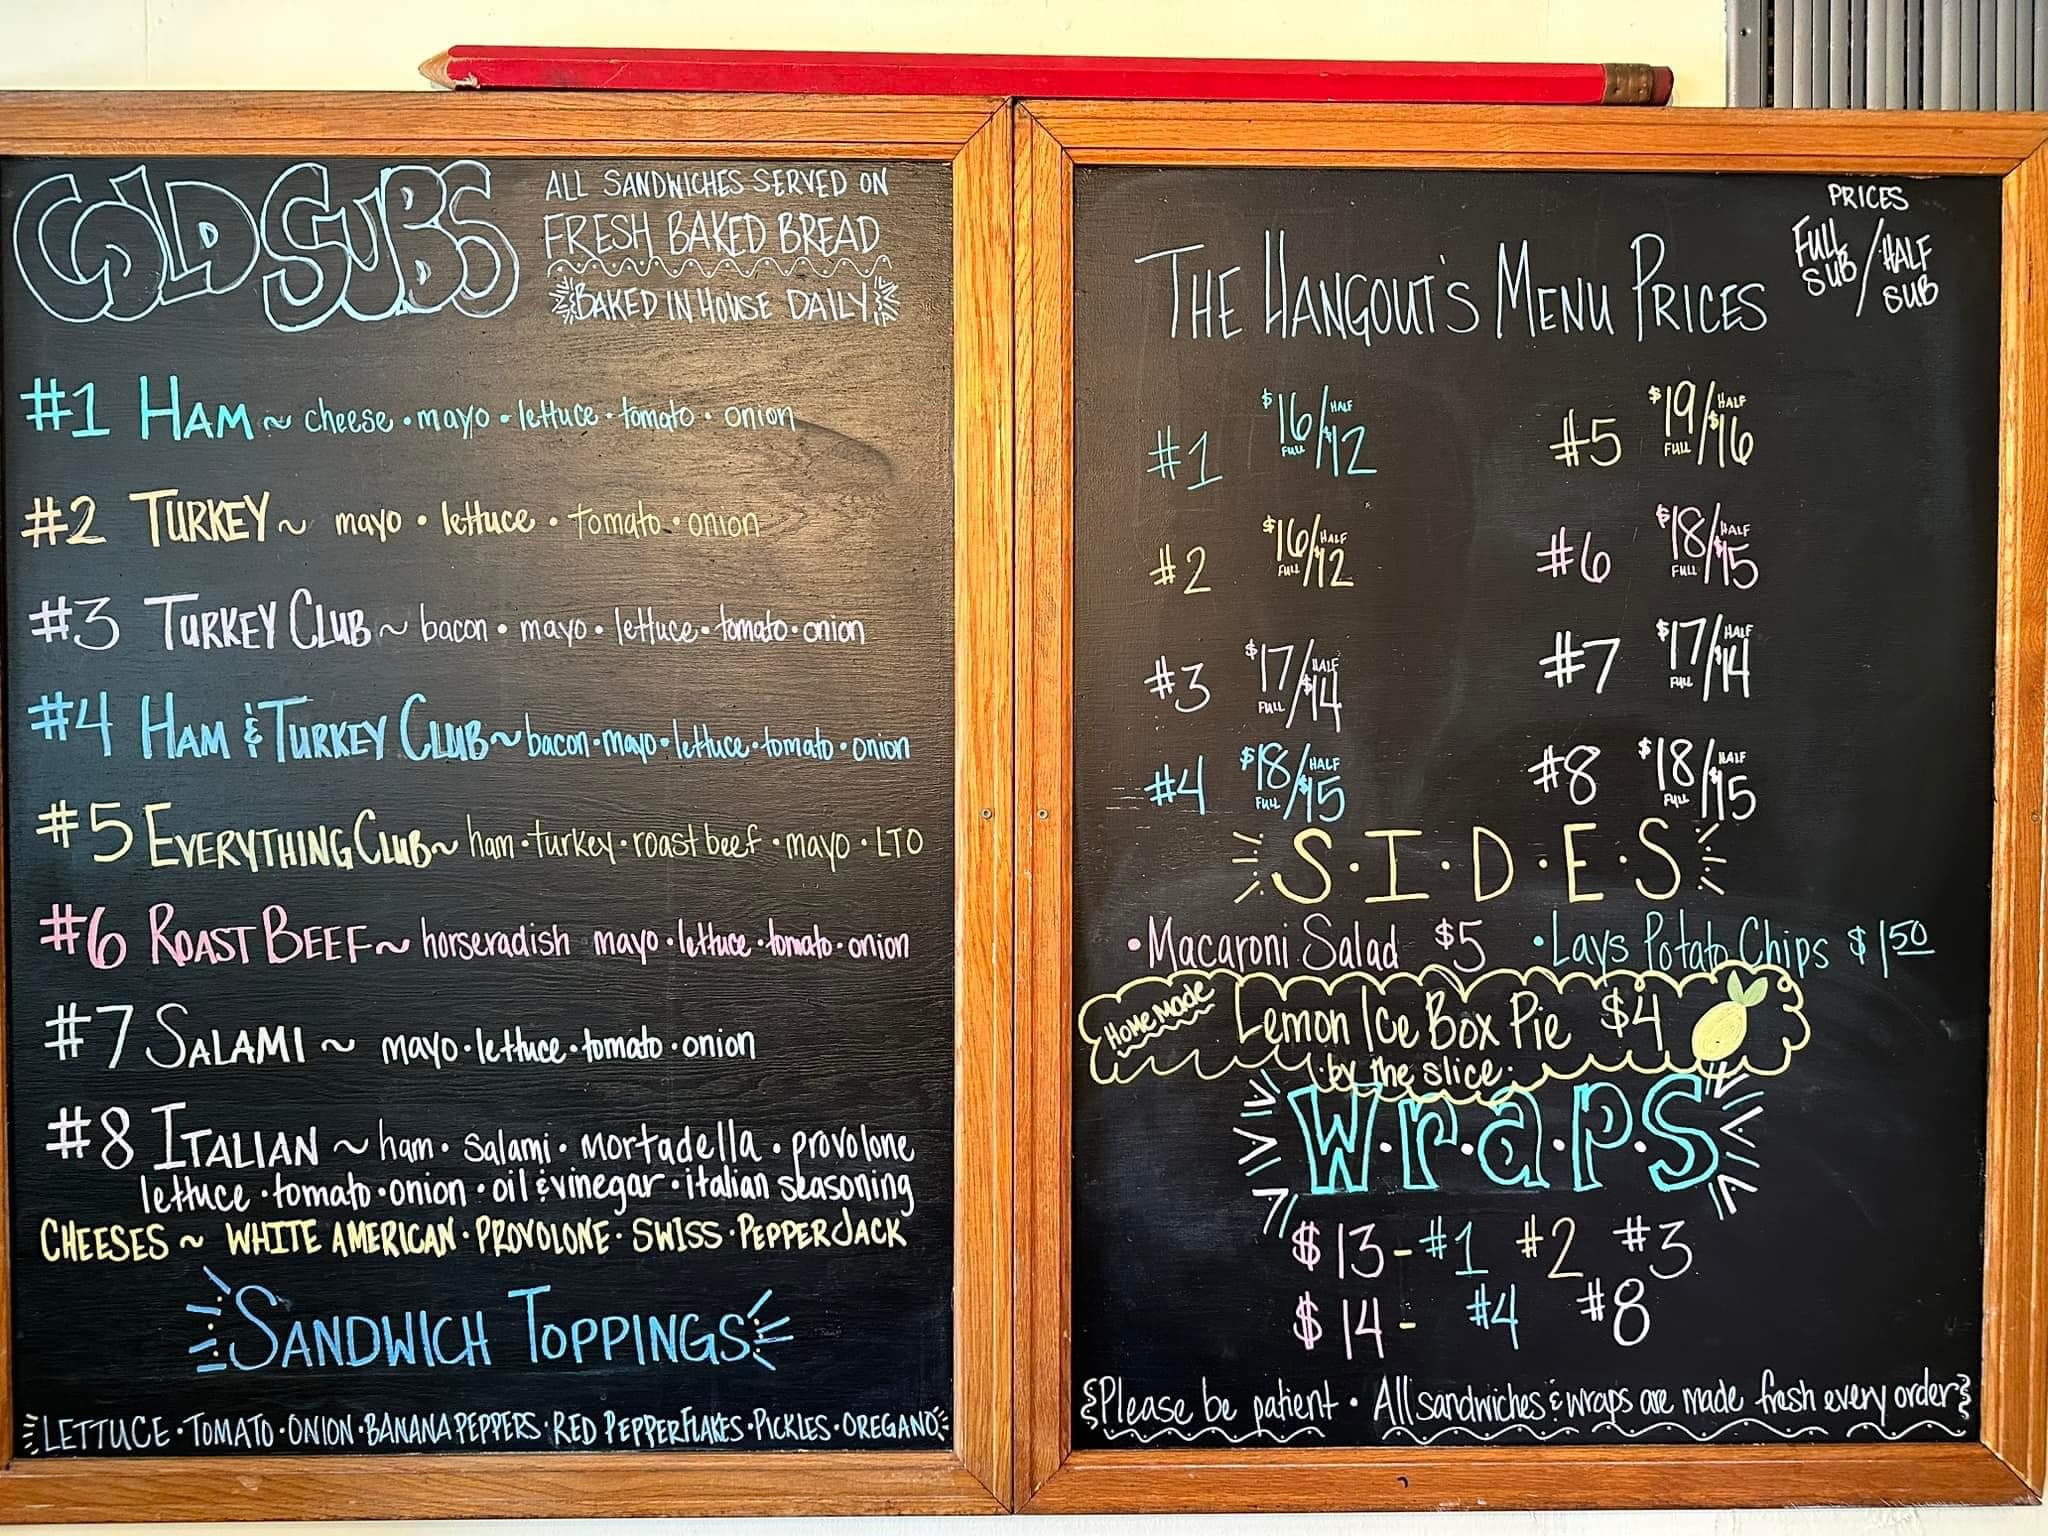 COLD SUBS
ALL SANDWICHES SERVED ON
FRESH BAKED BREAD
BAKED IN HOUSE DAILY
#1 HAM ~ cheese • mayo • lettuce • tomato • onion
#2 TURKEY ~ mayo • lettuce • tomato • onion
#3 TURKEY CLUB ~ bacon • mayo • lettuce • tomato • onion
#4 HAM & TURKEY CLUB ~ bacon • mayo • lettuce • tomato • onion
#5 EVERYTHING CLUB ~ ham • turkey • roast beef • mayo • LTO
#6 ROAST BEEF ~ horseradish mayo • lettuce • tomato • onion
#7 SALAMI ~ mayo • lettuce • tomato • onion
#8 ITALIAN ~ ham • salami • mortadella • provolone
lettuce • tomato • onion • oil & vinegar • italian seasoning
CHEESES ~ WHITE AMERICAN • PROVOLONE • SWISS • PEPPER JACK
SANDWICH TOPPINGS
LETTUCE • TOMATO • ONION • BANANA PEPPERS • RED PEPPER FLAKES • PICKLES • OREGANO
PRICES
FULL SUB / HALF SUB
THE HANGOUT'S MENU PRICES
#1 $16 FULL / HALF $12
#5 $19 FULL / HALF $16
#2 $16 FULL / HALF $12
#6 $18 FULL / HALF $15
#3 $17 FULL / HALF $14
#7 $17 FULL / HALF $14
#4 $18 FULL / HALF $15
#8 $18 FULL / HALF $15
S•I•D•E•S
• Macaroni Salad $5 • Lays Potato Chips $1.50
HOMEMADE Lemon Ice Box Pie $4
• by the slice •
W•r•a•p•s
$13 - #1 #2 #3
$14 - #4 #8
Please be patient • All sandwiches & wraps are made fresh every order